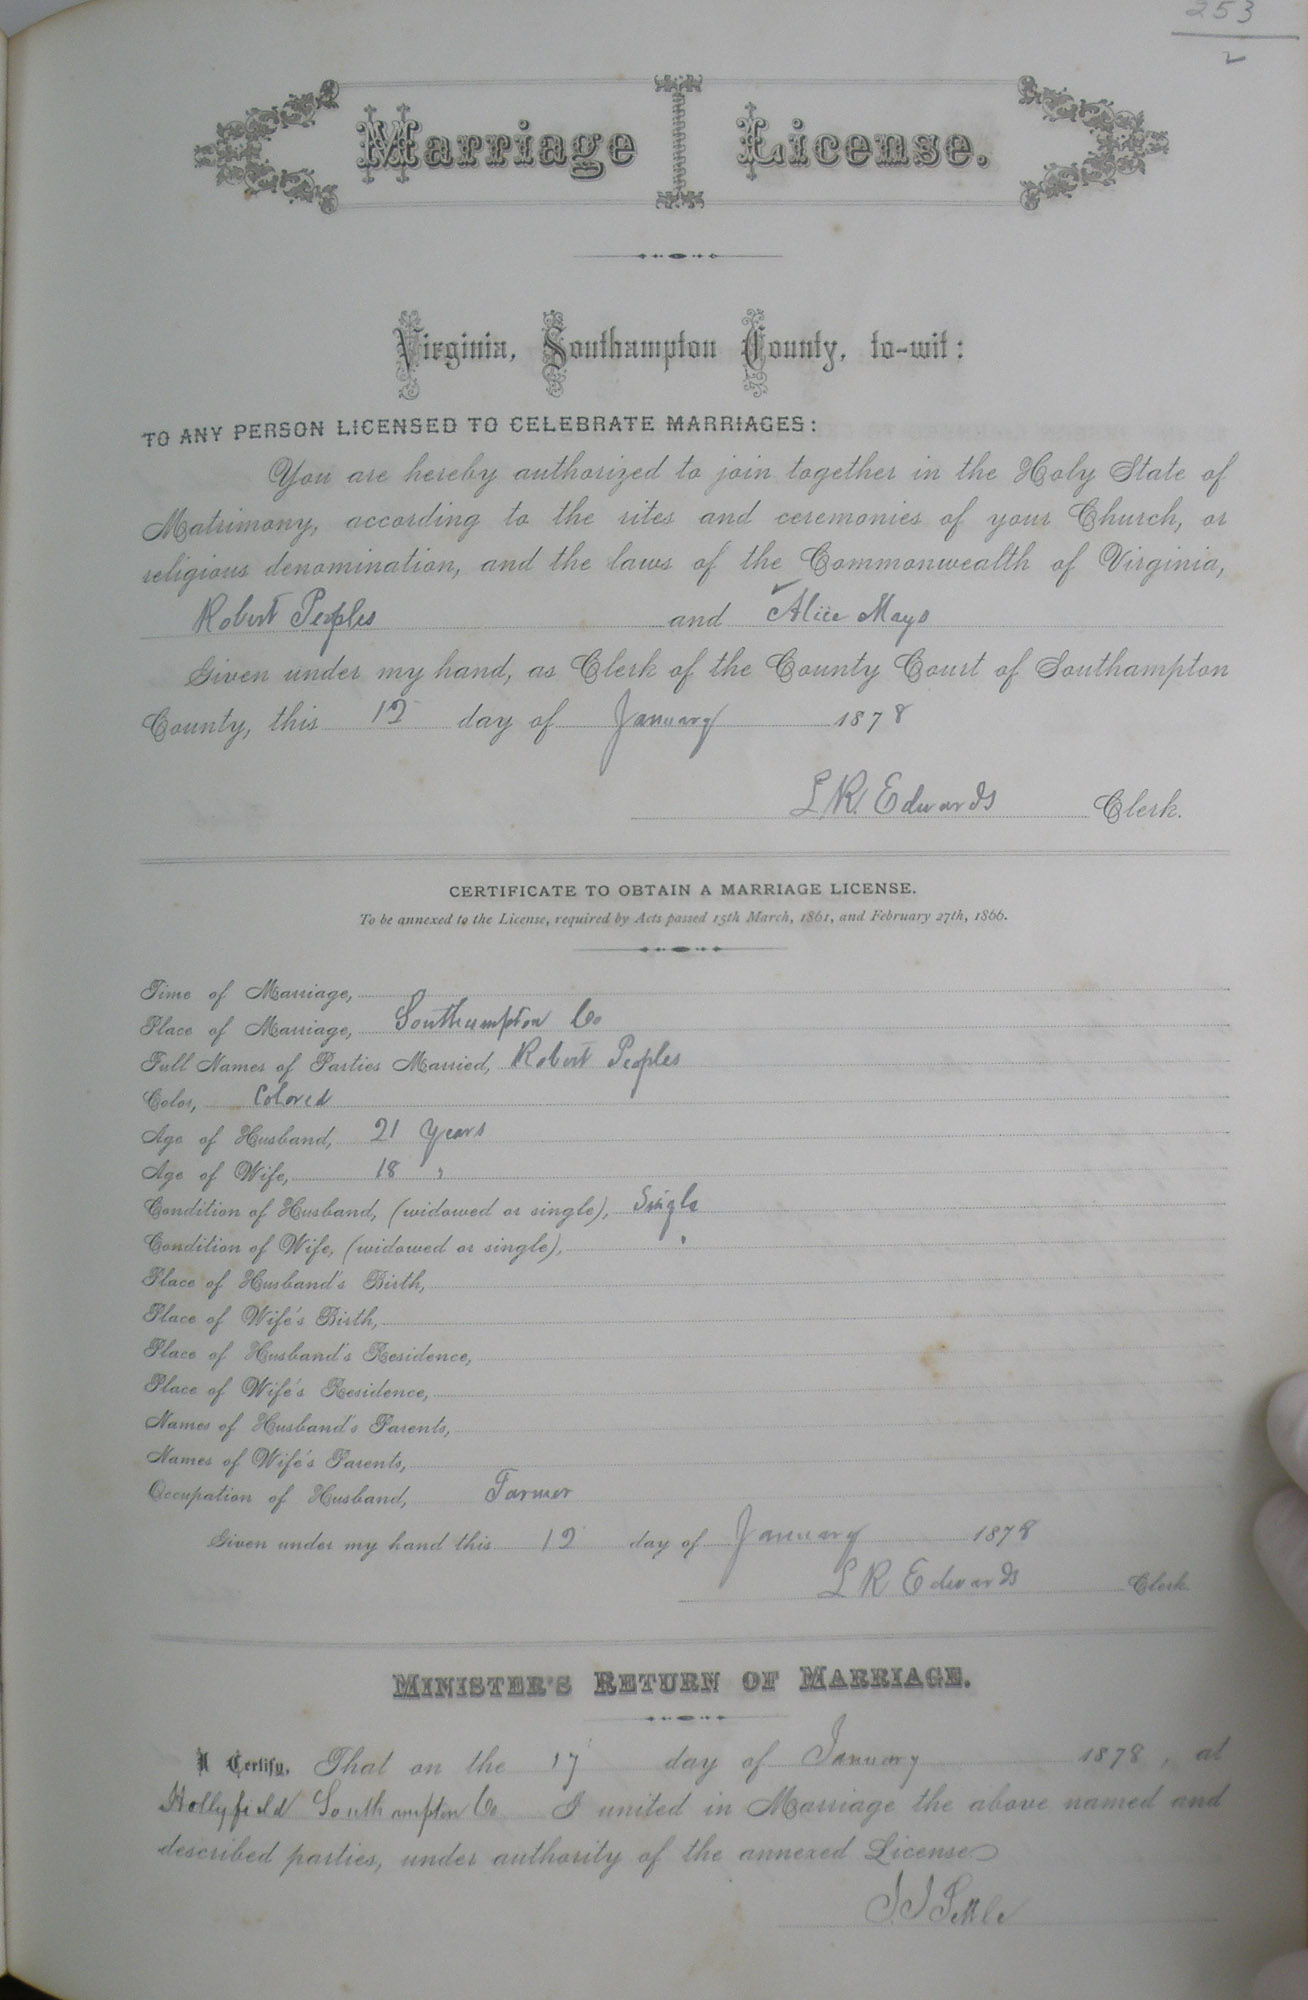 253
Marriage License.
Virginia, Southampton County, to-wit:
TO ANY PERSON LICENSED TO CELEBRATE MARRIAGES:
You are hereby authorized to join together in the Holy State of
Matrimony, according to the rites and ceremonies of your Church, or
religious denomination, and the laws of the Commonwealth of Virginia,
Robert Peoples and Alice Mays
Given under my hand, as Clerk of the County Court of Southampton
County, this 12 day of January 1878
L. R. Edwards Clerk.
CERTIFICATE TO OBTAIN A MARRIAGE LICENSE.
To be annexed to the License, required by Acts passed 15th March, 1861, and February 27th, 1866.
Time of Marriage,
Place of Marriage, Southampton Co
Full Names of Parties Married, Robert Peoples
Color, Colored
Age of Husband, 21 Years
Age of Wife, 18 "
Condition of Husband, (widowed or single), Single
Condition of Wife, (widowed or single), "
Place of Husband's Birth,
Place of Wife's Birth,
Place of Husband's Residence,
Place of Wife's Residence,
Names of Husband's Parents,
Names of Wife's Parents,
Occupation of Husband, Farmer
Given under my hand this 12 day of January 1878
L R Edwards Clerk.
MINISTER'S RETURN OF MARRIAGE.
I Certify, That on the 17 day of January 1878, at
Hollyfield Southampton Co I united in Marriage the above named and
described parties, under authority of the annexed License
J. J.